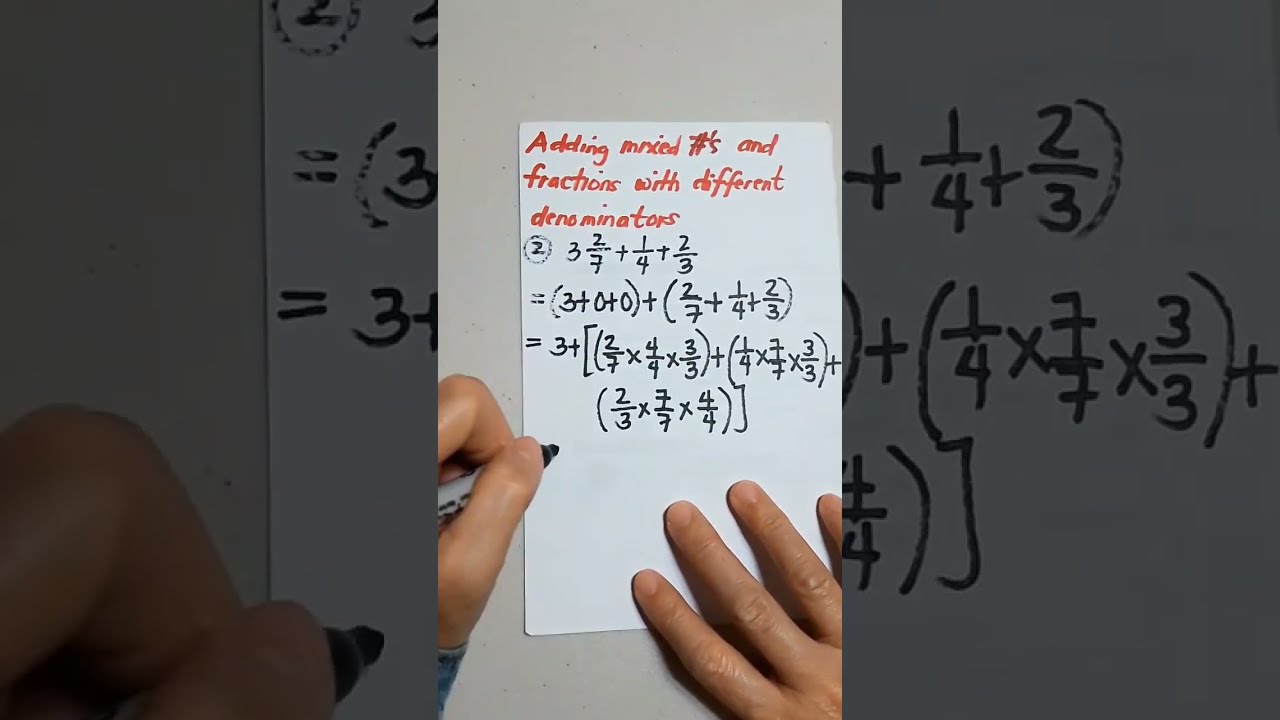 Adding mixed #'s and
fractions with different
denominators
② 3 2/7 + 1/4 + 2/3
= (3+0+0) + (2/7 + 1/4 + 2/3)
= 3+[(2/7 × 4/4 × 3/3) + (1/4 × 7/7 × 3/3) +
(2/3 × 7/7 × 4/4)]